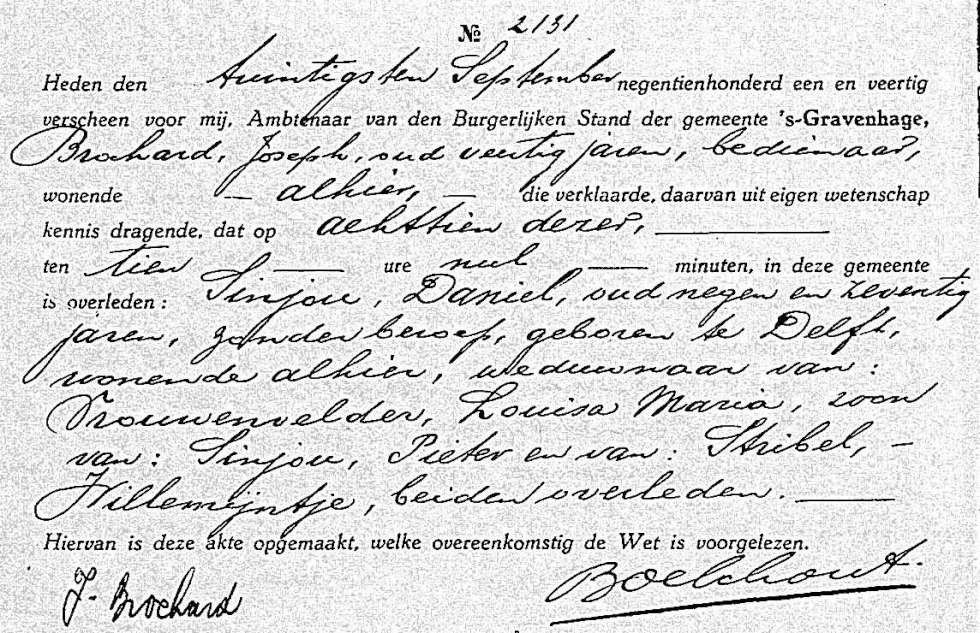 № 2131
Heden den twintigsten September negentienhonderd een en veertig
verscheen voor mij, Ambtenaar van den Burgerlijken Stand der gemeente 's-Gravenhage,
Brochard, Joseph, oud veertig jaren, bedienaar,
wonende — alhier, — die verklaarde, daarvan uit eigen wetenschap
kennis dragende, dat op achttien dezer,
ten tien ure nul minuten, in deze gemeente
is overleden: Sinjou, Daniel, oud negen en zeventig
jaren, zonder beroep, geboren te Delft,
wonende alhier, weduwnaar van:
Vrouwenvelder, Louisa Maria, zoon
van: Sinjou, Pieter en van: Stribel, –
Willemijntje, beiden overleden.
Hiervan is deze akte opgemaakt, welke overeenkomstig de Wet is voorgelezen.
J. Brochard Boelchout.